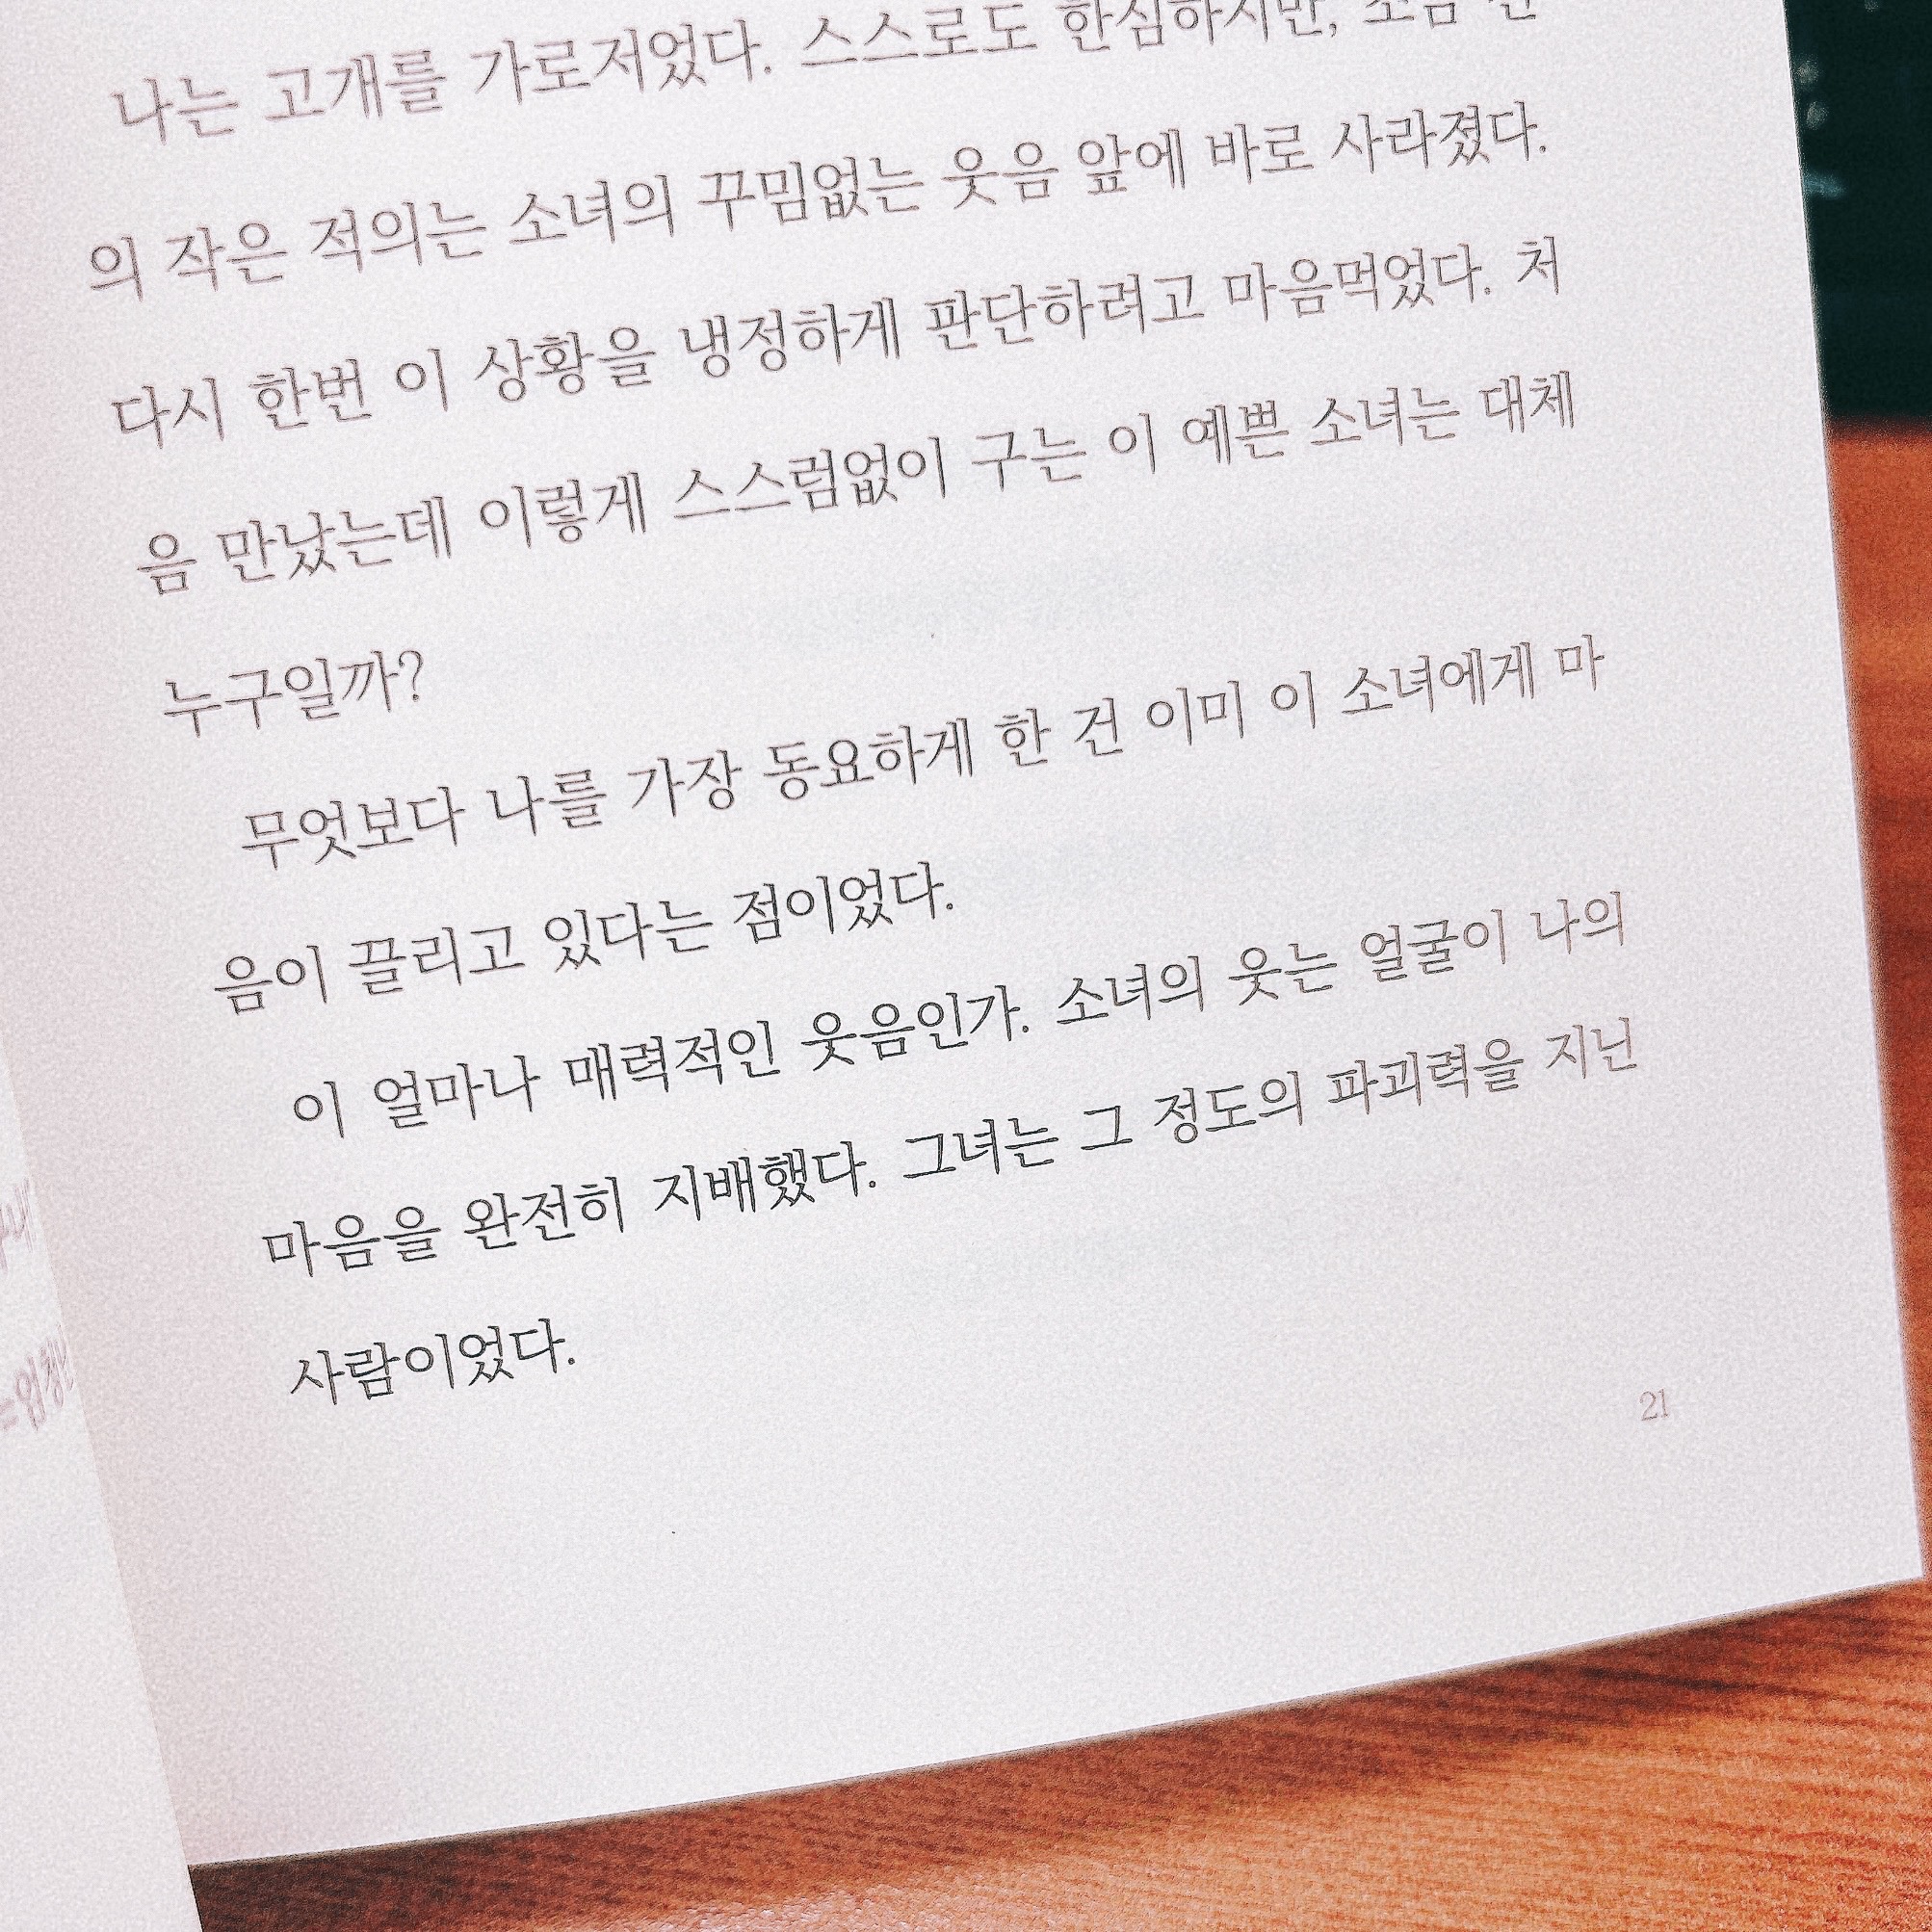 나는 고개를 가로저었다. 스스로도 한심하지만, 조금 전
의 작은 적의는 소녀의 꾸밈없는 웃음 앞에 바로 사라졌다.
다시 한번 이 상황을 냉정하게 판단하려고 마음먹었다. 처
음 만났는데 이렇게 스스럼없이 구는 이 예쁜 소녀는 대체
누구일까?
무엇보다 나를 가장 동요하게 한 건 이미 이 소녀에게 마
음이 끌리고 있다는 점이었다.
이 얼마나 매력적인 웃음인가. 소녀의 웃는 얼굴이 나의
마음을 완전히 지배했다. 그녀는 그 정도의 파괴력을 지닌
사람이었다.
21